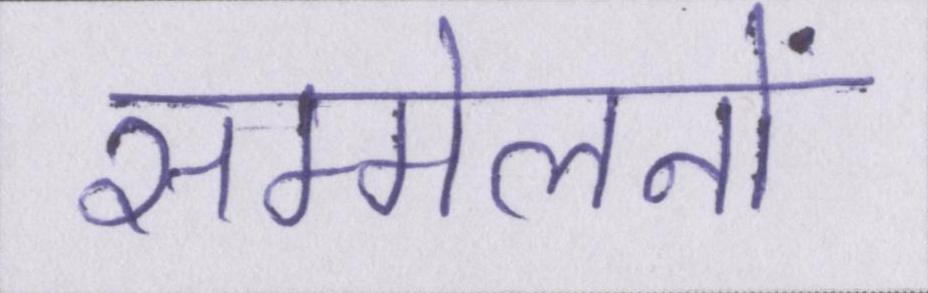 सम्मेलनों